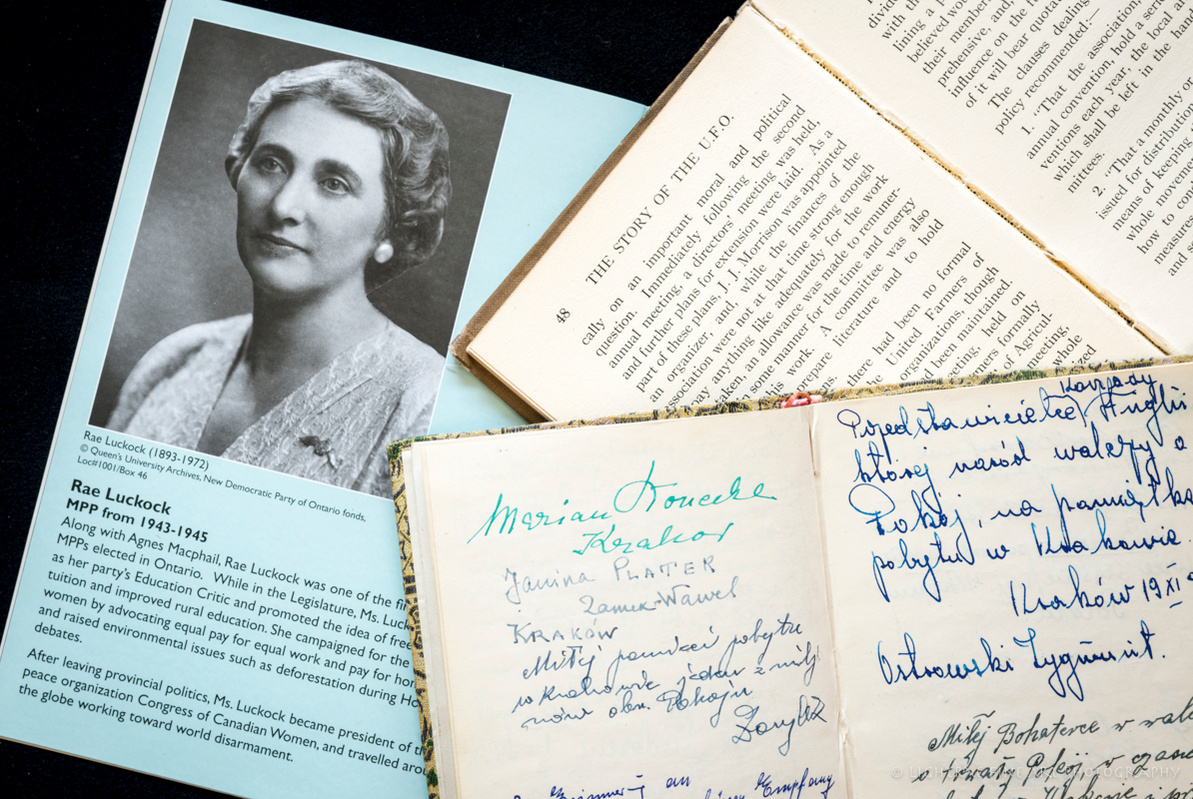 Rae Luckock (1893-1972)
© Queen's University Archives, New Democratic Party of Ontario fonds,
Loc#1001/Box 46
Rae Luckock
MPP from 1943-1945
Along with Agnes Macphail, Rae Luckock was one of the fir
MPPs elected in Ontario. While in the Legislature, Ms. Luck
as her party's Education Critic and promoted the idea of free
tuition and improved rural education. She campaigned for the
women by advocating equal pay for equal work and pay for hom
and raised environmental issues such as deforestation during Ho
debates.
After leaving provincial politics, Ms. Luckock became president of th
peace organization Congress of Canadian Women, and travelled arou
the globe working toward world disarmament.
48 THE STORY OF THE U.F.O.
cally on an important moral and political
question. Immediately following the second
annual meeting, a directors' meeting was held,
and further plans for extension were laid. As a
part of these plans, J. J. Morrison was appointed
an organizer, and, while the finances of the
ssociation were not at that time strong enough
pay anything like adequately for the work
taken, an allowance was made to remuner-
n some manner for the time and energy
is work. A committee was also
prepare literature and to hold
s.
here had been no formal
e United Farmers of
organizations, though
d been maintained.
eeting, held on
mers formally
of Agricul-
meeting,
whole
ized
divid
with th
lining a p
believed wou
their membe
prehensive, and
influence on the fu
of it will bear quotat
The clauses dealing
policy recommended:—
1. "That the association
annual convention, hold a seri
ventions each year, the local
which shall be left in the hand
mittees.
2. "That a monthly or
issued for distribution
means of keeping
whole movemen
how to con
measures
and s
Marian Konieczka
Kraków
Janina PLATER
Zamek-Wawel
KRAKÓW
Miłej pamięci pobytu
w Krakowie jeden z milj
nów obr. Pokoju
Przedstawicielce Anglii
Kanady
której naród walczy o
Pokój, na pamiątkę
pobytu w Krakowie.
Kraków 19 XI
Ostrowski Zygmunt.
Miłej Bohaterce w walce
o trwały Pokój, w czasie
Empfang
PHOTOGRAPHY